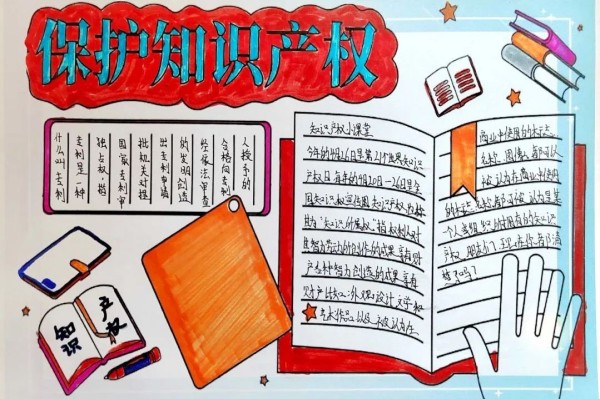 保护知识产权
什么叫专利
专利是一种
独占权,指
国家专利审
批机关对提
出专利申请
的发明创造
经依法审查
合格向专利
人授予的
知识
产权
知识产权小课堂
今年的4月26日是第21个世界知识
产权日,每年的4月20—26日是全
国知识产权宣传周.知识产权,也称
其为"知识所属权",指权利人对
其智力劳动所创作的成果享有财
产各种智力创造的成果享有
财产比如:外观设计、文学和
艺术作品,以及被认为在
商业中使用的标志、
名称、图像,都可以
被认为在商业中使用
的标志,名称都可被认为是某
个人或组织所拥有的知识
产权.朋友们,现在你看清
楚了吗?